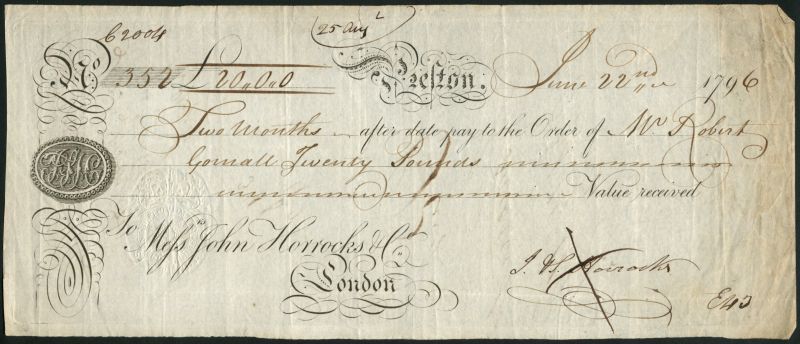 C2004 25 Augt
No 352 £20,,0,,0 Preston. June 22nd 1796
Two Months after date pay to the Order of Mr Robert
Gornall Twenty Pounds
Value received
To Messrs John Horrocks & Co
London
J. & S. Horrocks
E43